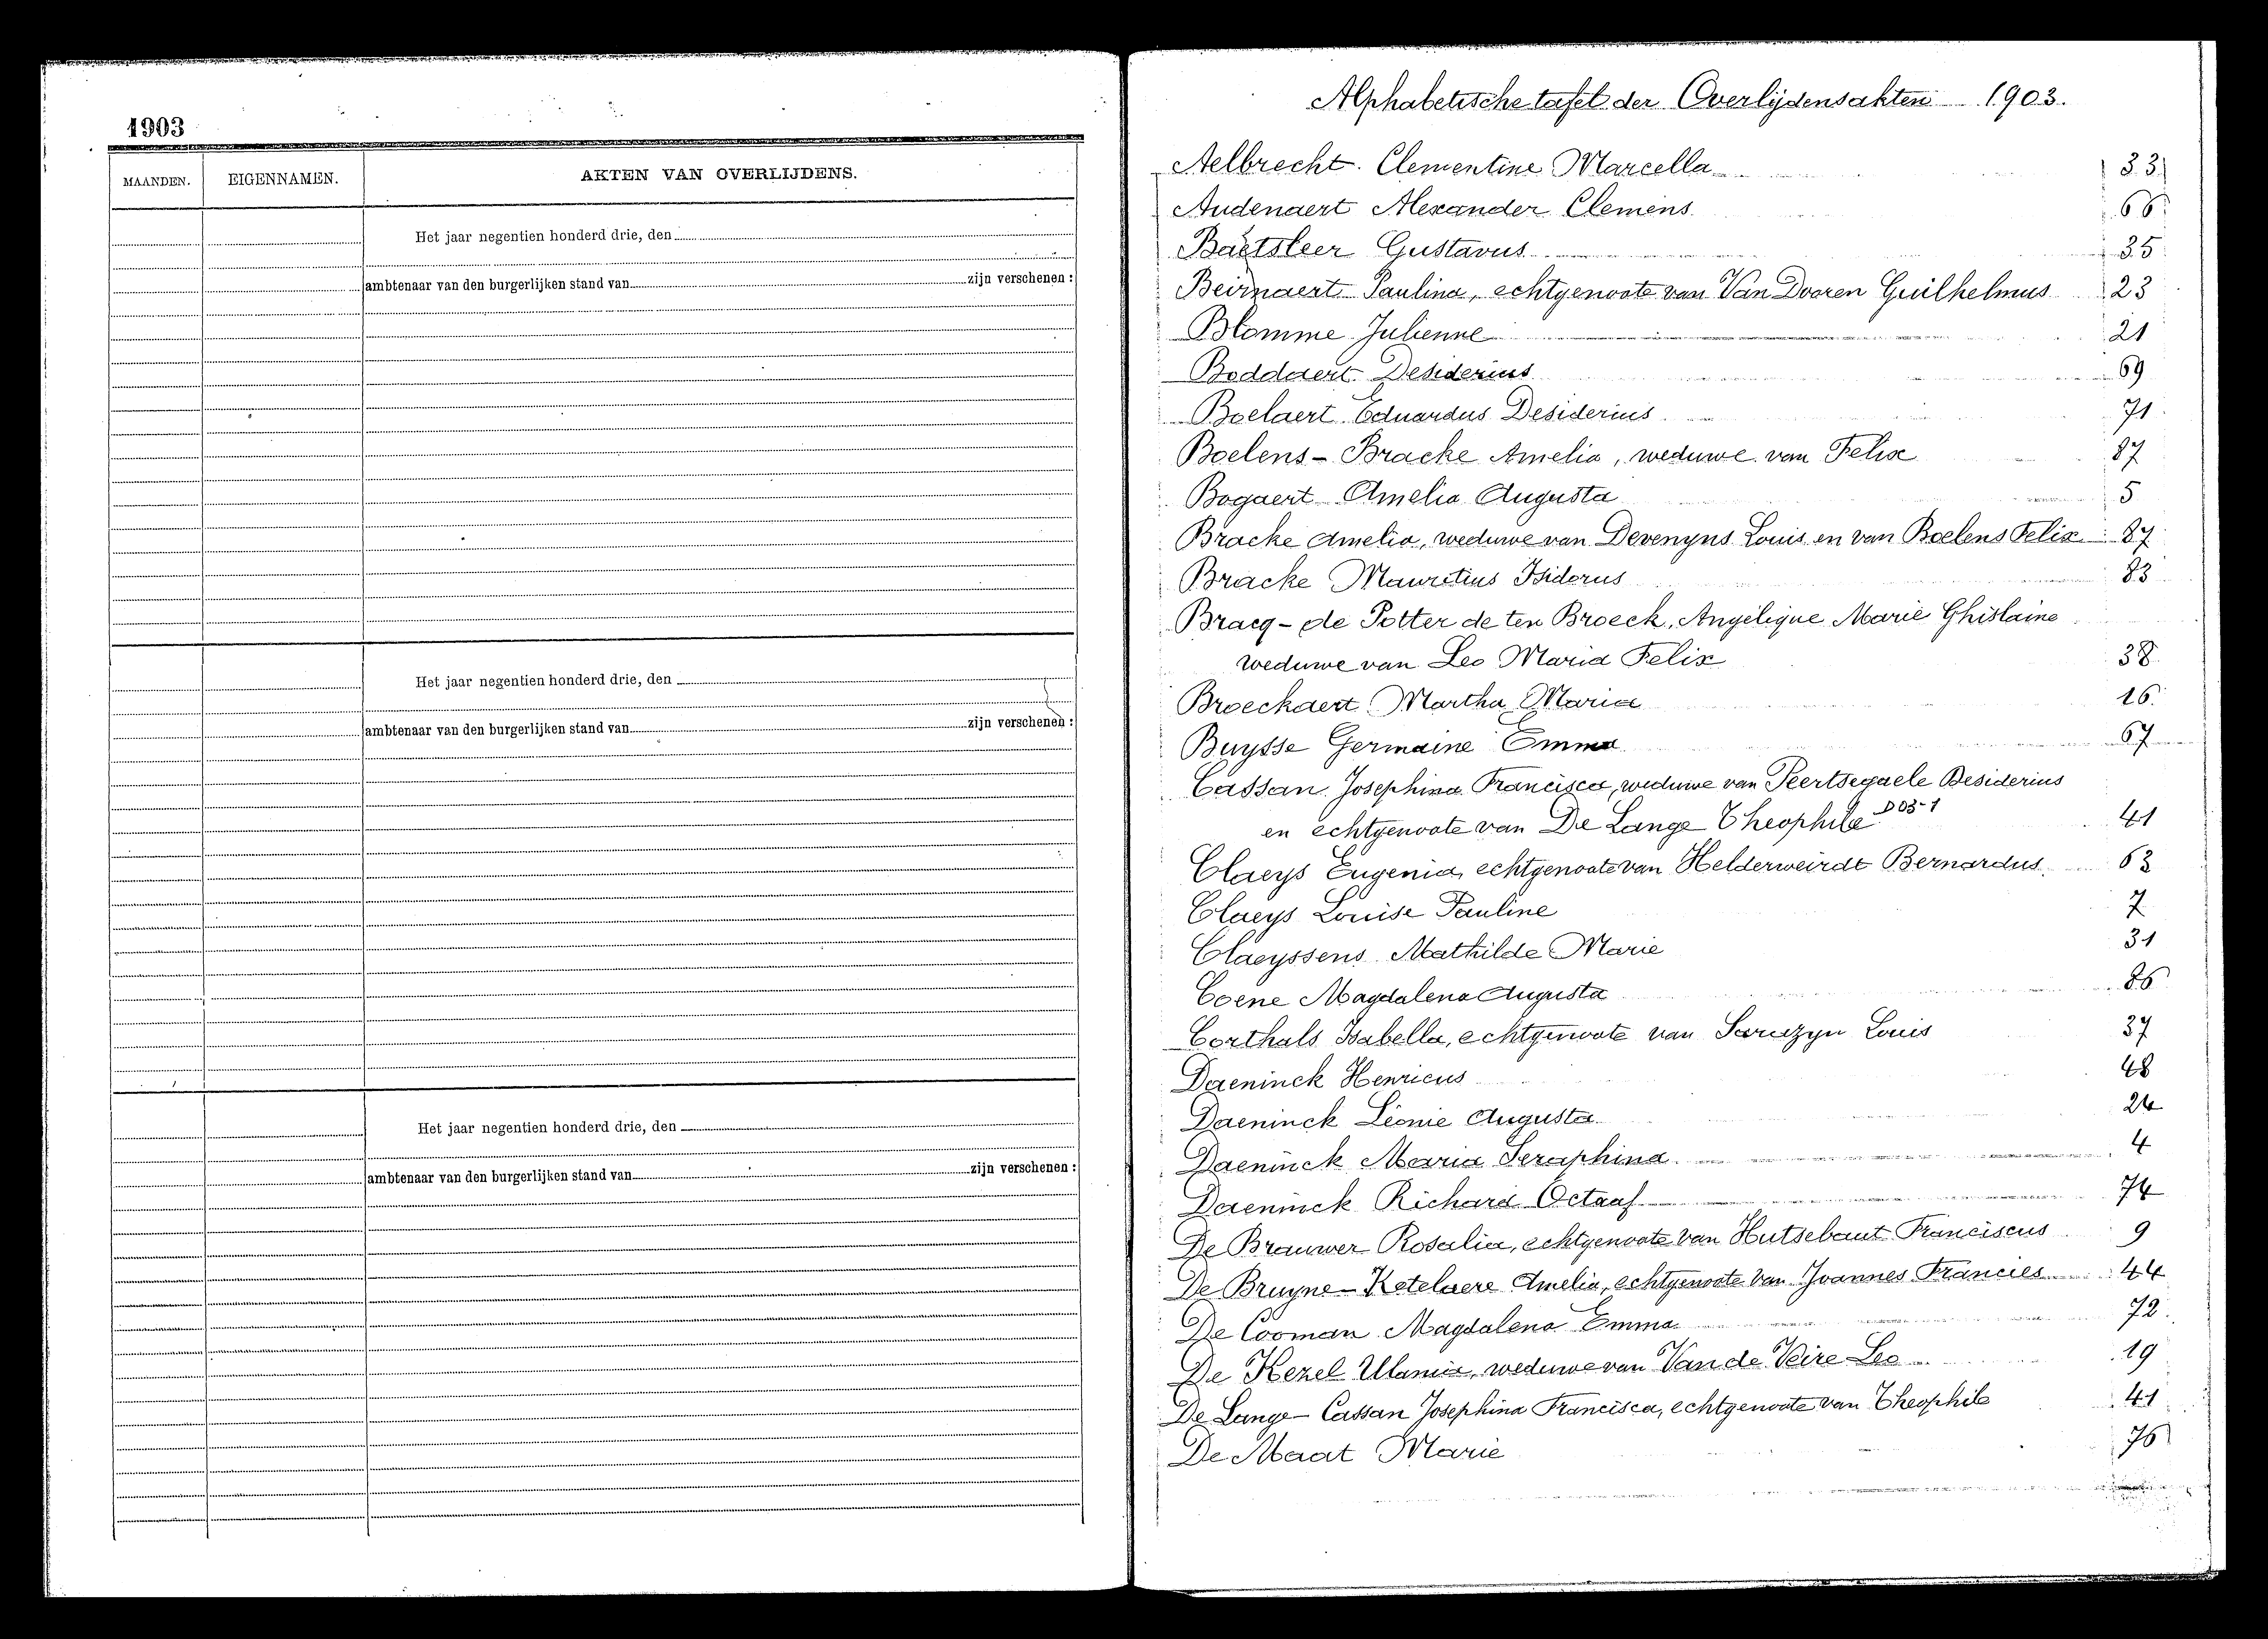 1903
MAANDEN. EIGENNAMEN. AKTEN VAN OVERLIJDENS.
Het jaar negentien honderd drie, den
ambtenaar van den burgerlijken stand van zijn verschenen :
Het jaar negentien honderd drie, den
ambtenaar van den burgerlijken stand van zijn verschenen :
Het jaar negentien honderd drie, den
ambtenaar van den burgerlijken stand van zijn verschenen :
Alphabetische tafel der Overlijdensakten 1903.
Aelbrecht Clementine Marcella 33
Audenaert Alexander Clemens 66
Baetsleer Gustavus 35
Beirnaert Paulina, echtgenoote van Van Dooren Guilhelmus 23
Blomme Julienne 21
Boddaert Desiderius 69
Boelaert Eduardus Desiderius 71
Boelens - Bracke Amelia, weduwe van Felix 87
Bogaert Amelia Augusta 5
Bracke Amelia, weduwe van Devenyns Louis en van Boelens Felix 87
Bracke Mauritius Isidorus 83
Bracq - de Potter de ten Broeck, Angélique Marie Ghislaine
weduwe van Leo Maria Felix 38
Broeckaert Martha Maria 16
Buysse Germaine Emma 67
Cassan Josephina Francisca, weduwe van Peertsegaele Desiderius
en echtgenoote van De Lange Theophile D 03-1 41
Claeys Eugenia, echtgenoote van Helderweirdt Bernardus 63
Claeys Louise Pauline 7
Claeyssens Mathilde Marie 31
Coene Magdalena Augusta 86
Corthals Isabella, echtgenoote van Sarazyn Louis 37
Daeninck Henricus 48
Daeninck Léonie Augusta 24
Daeninck Maria Seraphina 4
Daeninck Richard Octaaf 74
De Brauwer Rosalia, echtgenoote van Hutsebaut Franciscus 9
De Bruyne - Ketelaere Amelia, echtgenoote van Joannes Francies 44
De Cooman Magdalena Emma 72
De Kezel Ulania, weduwe van Van de Veire Leo 19
De Lange - Cassan Josephina Francisca, echtgenoote van Theophile 41
De Maat Marie 76